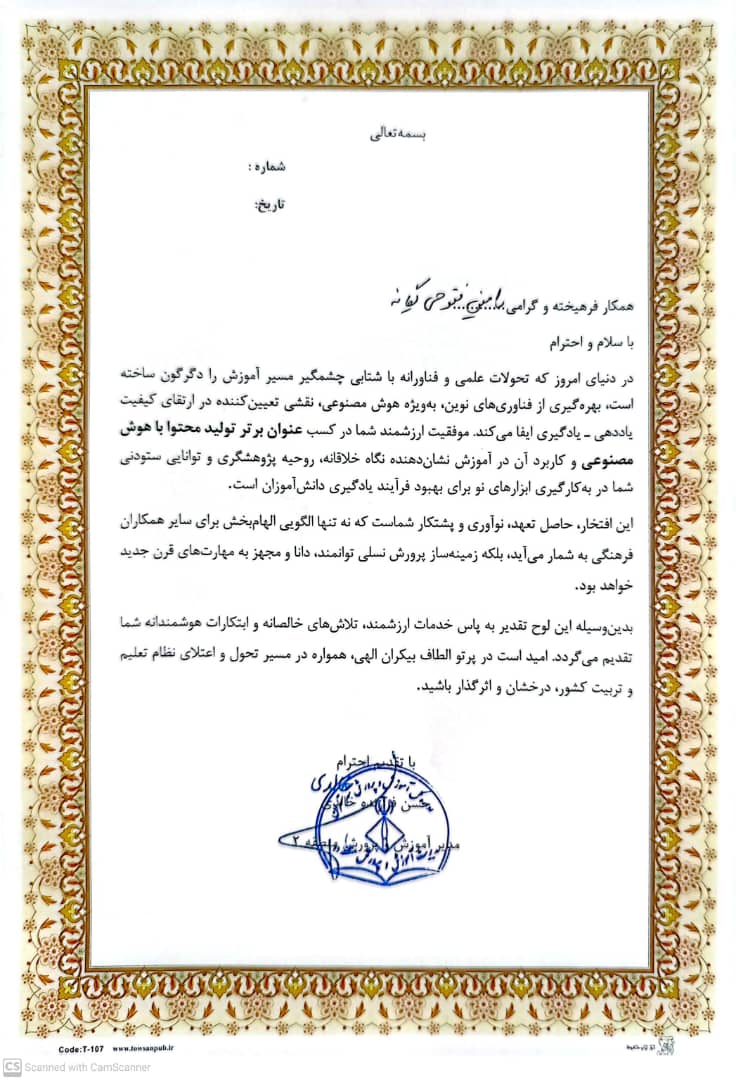 بسمه تعالی
شماره :
تاریخ:
همکار فرهیخته و گرامی
با سلام و احترام
در دنیای امروز که تحولات علمی و فناورانه با شتابی چشمگیر مسیر آموزش را دگرگون ساخته
است، بهره‌گیری از فناوری‌های نوین، به‌ویژه هوش مصنوعی، نقشی تعیین‌کننده در ارتقای کیفیت
یاددهی ـ یادگیری ایفا می‌کند. موفقیت ارزشمند شما در کسب عنوان برتر تولید محتوا با هوش
مصنوعی و کاربرد آن در آموزش نشان‌دهنده نگاه خلاقانه، روحیه پژوهشگری و توانایی ستودنی
شما در به‌کارگیری ابزارهای نو برای بهبود فرآیند یادگیری دانش‌آموزان است.
این افتخار، حاصل تعهد، نوآوری و پشتکار شماست که نه تنها الگویی الهام‌بخش برای سایر همکاران
فرهنگی به شمار می‌آید، بلکه زمینه‌ساز پرورش نسلی توانمند، دانا و مجهز به مهارت‌های قرن جدید
خواهد بود.
بدین‌وسیله این لوح تقدیر به پاس خدمات ارزشمند، تلاش‌های خالصانه و ابتکارات هوشمندانه شما
تقدیم می‌گردد. امید است در پرتو الطاف بیکران الهی، همواره در مسیر تحول و اعتلای نظام تعلیم
و تربیت کشور، درخشان و اثرگذار باشید.
با تقدیم احترام
مدیر آموزش و پرورش منطقه ۲
Code:T-107 www.towsanpub.ir
CS Scanned with CamScanner